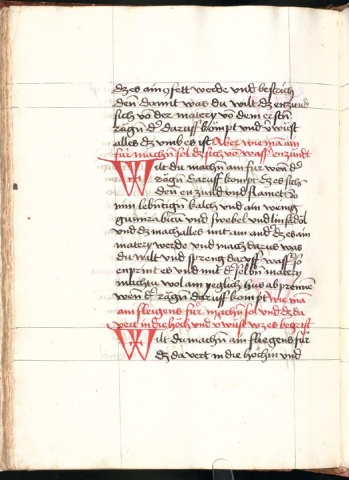 dz es ain ꝯfett werde und bestrich
den damit was du wilt dz enzund
sich võ der matery võ dem erstñ
rägñ dʳ daruff kompt und vͦwüst
alles dz umb es ist Aber wie ma ain
für machñ sol dz sich võ wassʳ enzündt
Wilt du machñ ain für wen dʳ
rägñ daruff kompt dz es sich
den enzund und flamet so
nim lebentigñ kalch und ain wenig
gumi rabicu und swebel und linsadöl
und dz mach alles mit ain andʳ dz es ain
matery werde und mach darus was
du wilt und spreng daruff wassʳ so
enprint es und mit dʳ selbñ matery
machtu wol ain yeglich hus abprennē
wen dʳ rägñ daruff kompt wie mā
ain fliegens für machñ sol und dz da
vert in die höch und vͦwüst wz es begrift
Wilt du machñ ain fliegens für
dz da vert in die höchin und